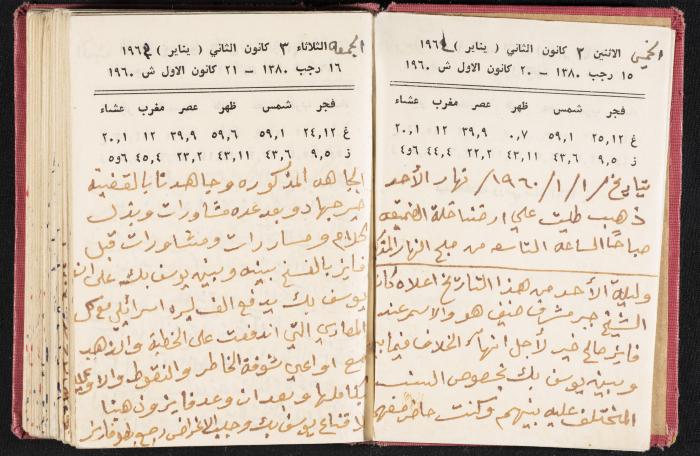 الخميس الاثنين ٣ كانون الثاني ( يناير ) ١٩٦٤
١٥ رجب ١٣٨٠ – ٢٠ كانون الاول ش ١٩٦٠
فجر شمس ظهر عصر مغرب عشاء
غ ٢٥،١٢ ٥٩،١ ٠،٧ ٣٩،٩ ١٢ ٢٠،١
ز ٩،٥ ٤٣،٦ ٤٣،١١ ٢٢،٢ ٤٤،٤ ٤و٦
بتاريخ /١/١/١٩٦٠ نهار الأحد
ذهب طليت على ارضنا خلة الضيقه
صباحًا الساعه التاسعه من صباح النهار
وليلة الأحد من هذا التاريخ اعلاه كان
الشيخ جبر مشرف ضيف هو والاسم عند
فايز صالح خير لأجل انهاء الخلاف فيما بينه
وبينه يوسف بك بخصوص البيت
المختلف عليه بينهم وكنت حاضر معهم
الجمعه الثلاثاء ٣ كانون الثاني ( يناير ) ١٩٦٤
١٦ رجب ١٣٨٠ – ٢١ كانون الاول ش ١٩٦٠
فجر شمس ظهر عصر مغرب عشاء
غ ٢٤،١٢ ٥٩،١ ٥٩،٦ ٣٩،٩ ١٢ ٢٠،١
ز ٩،٥ ٤٣،٦ ٤٣،١١ ٢٣،٢ ٤٥،٤ ٥و٦
الجاهه المذكوره وجاهدنا بالقضية
خير جهاد وبعد عده مشاورات وبذل
كلام ومساررات ومشاورات قبل
فايز بالفسخ بينه وبينه يوسف بك على ان
يوسف بك يدفع الف ليره اسرائيلي مع كل
المصاري التي اندفعت على الخطبة والذهب
مع اواعي شوفة الخاطر والنقوط
بكاملها وبعد ان وعد فايز ونهينا
لاقناع يوسف بك وجلب الاغراض رجع فايز